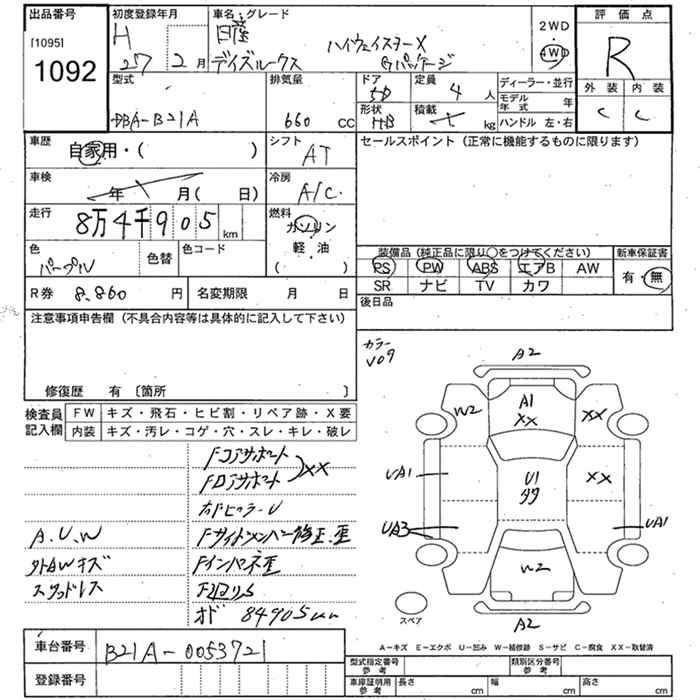 出品番号 初度登録年月 車名・グレード 2WD 評価点
[1095] H 日産 ハイウェイスターX 4WD R
1092 27 2月 デイズルークス Gパッケージ 外装 内装
C C
型式 排気量 ドア 定員 4人 ディーラー・並行
DBA-B21A 660 CC 5D モデル年式 年
形状 HB 積載 kg ハンドル 左・右
車歴 自家用・( ) シフト AT セールスポイント (正常に機能するものに限ります)
車検 年 月( 日) 冷房 A/C
走行 8万4千905km 燃料 ガソリン
軽・油
( )
色 パープル 色替 色コード
装備品 (純正品に限り○をつけてください) 新車保証書
PS PW ABS エアB AW 有・無
SR ナビ TV カワ
R券 8,860円 名変期限 月 日 後日品
注意事項申告欄 (不具合内容等は具体的に記入して下さい)
修復歴 有 〔箇所 〕
カラー
V09
検査員記入欄 FW キズ・飛石・ヒビ割・リペア跡・X要
内装 キズ・汚レ・コゲ・穴・スレ・キレ・破レ
Fコアサポート
XX
A.U.W Fサイドメンバー修正、歪
外AWキズ Fインパネ歪
スタッドレス
84905km
A2
W2 A1 XX XX
UA1 U1 XX
UA3 UA1
W2
A2
スペア
A-キズ E-エクボ U-凹み W-補修跡 S-サビ C-腐食 XX-取替済
車台番号 B21A-0053721
登録番号
型式指定番号 参考 類別区分番号 参考
車庫証明用 参考 長さ cm 幅 cm 高さ cm